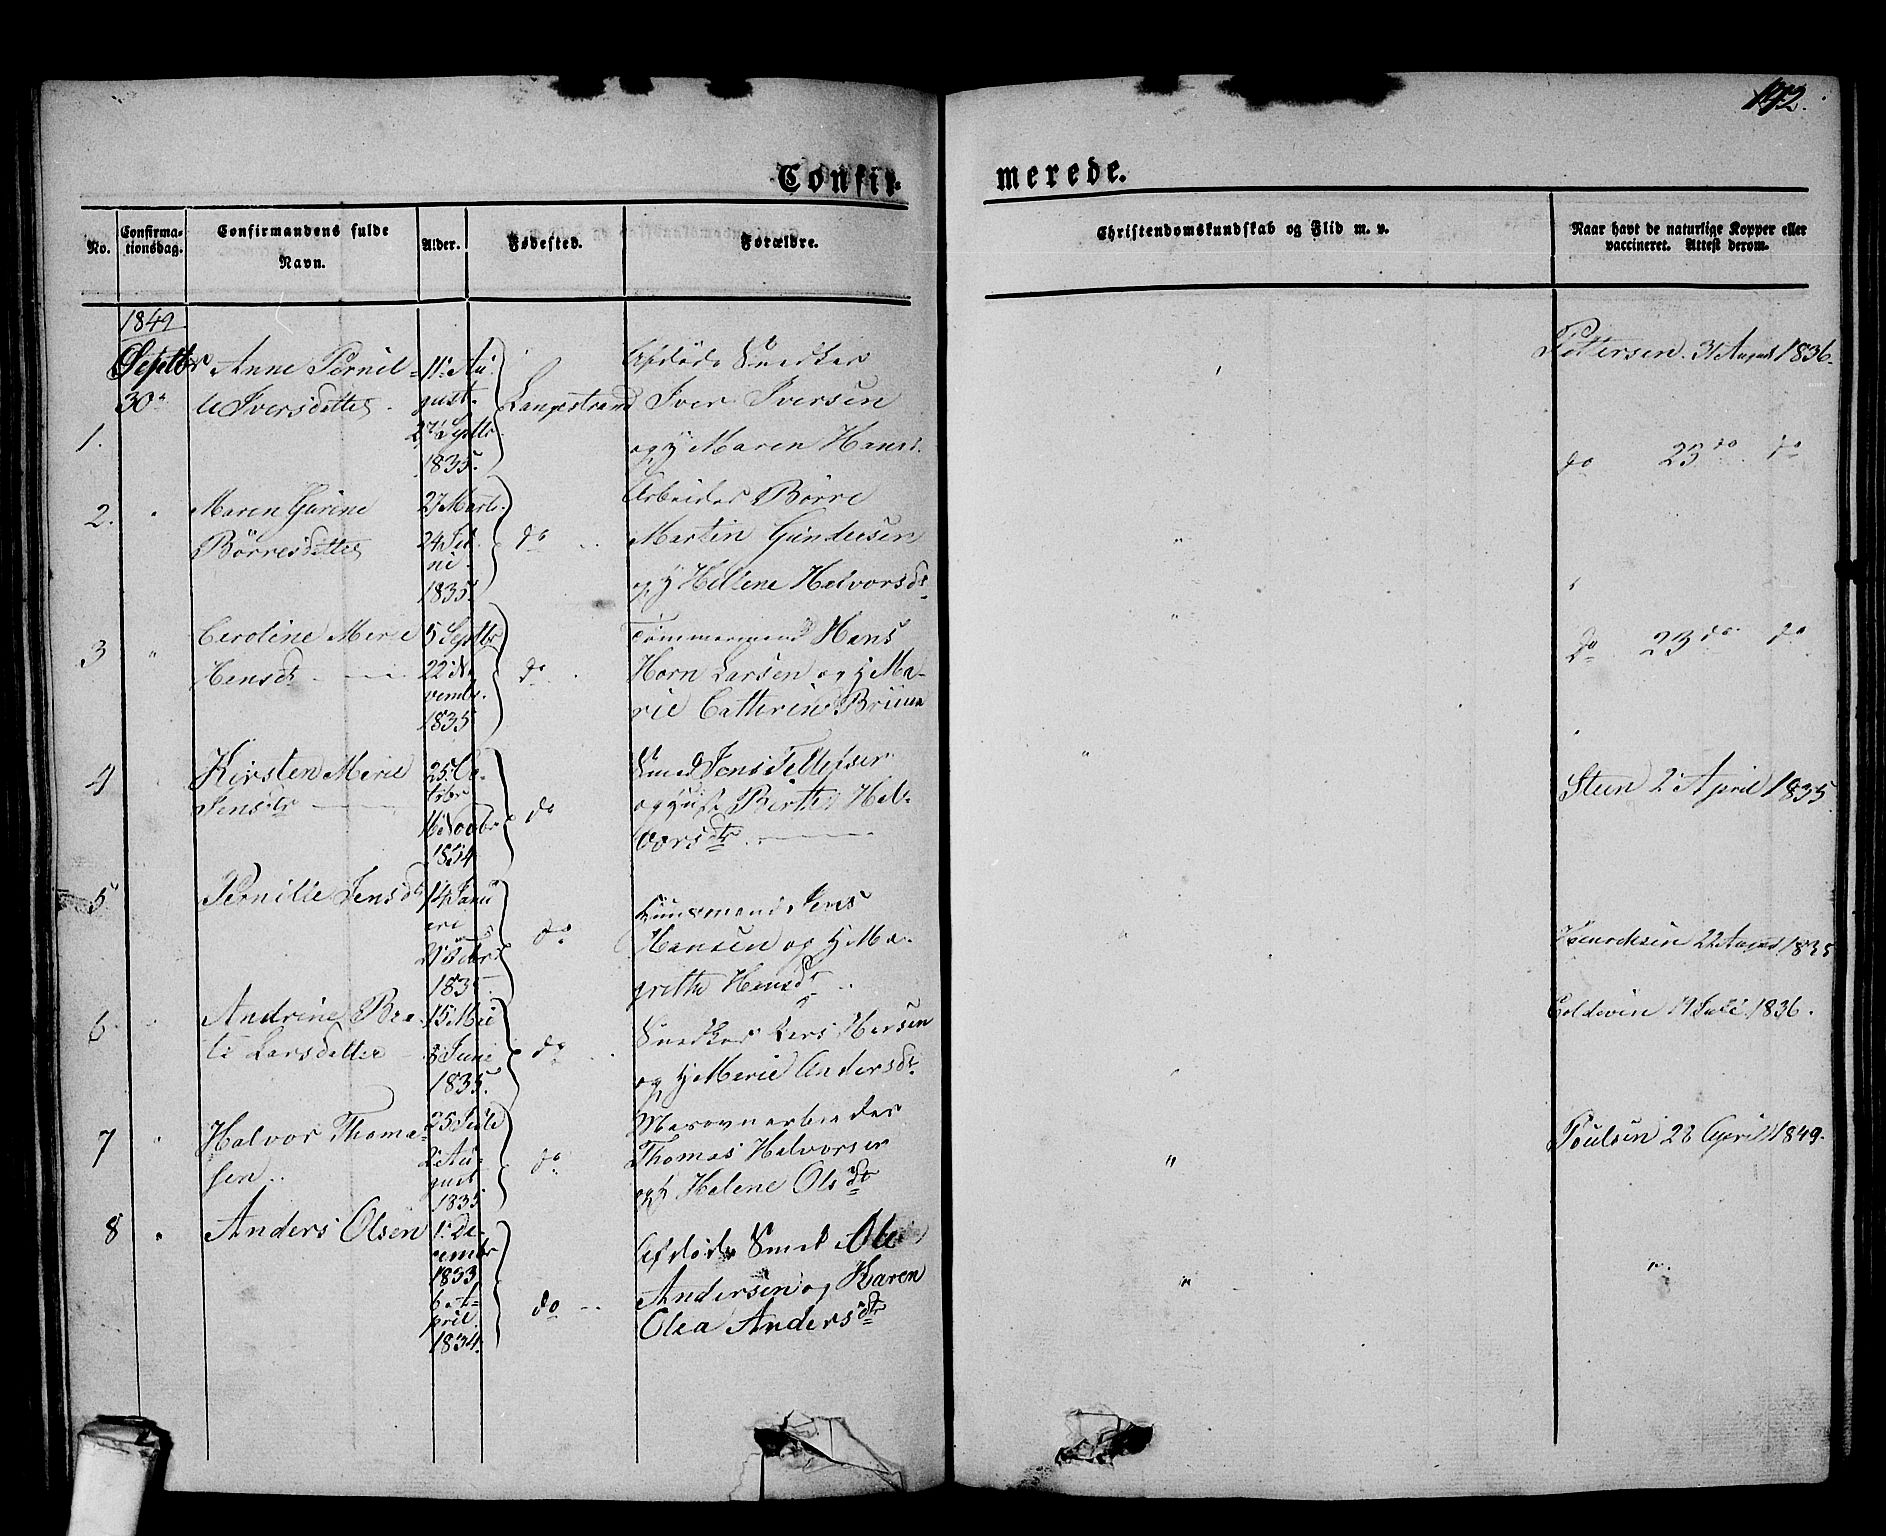 192.
Confir-
merede.
No.
Confirma-
tionsdag.
Confirmandens fulde
Navn.
Alder.
Fødested.
Forældre.
Christendomskundskab og Flid m. v.
Naar havt de naturlige Kopper eller
vaccineret. Attest derom.
1849
Septbr
30
1.
Anne Pernil-
le Iversdatter
11 Au-
gust
27 Septbr
1835.
Langestrand
Afdöde Snedker
Iver Iversen
og Maren Hansd.
Pettersen 31 August 1836.
2.
Maren Gurine
Börresdatter
27 Marts
24 Ju-
ni
1835.
do
Arbeider Börre
Martin Gundersen
og Hellene Halvorsdr
do 23 do do
3
Caroline Marie
Hansdr
5 Septbr
22 No-
vembr.
1835
do
Tömmermand Hans
Horn Larsen og Ma-
rie Cathrine Bruun
do 23 do do
4
Kirsten Marie
Jensdr
25 Oc-
tbr
16 Novbr
1834
do
Smed Jens Tellefsen
og Birthe Hal-
vorsdtr
Steen 2 April 1835.
5
Pernille Jensd
14 Janu
ari
1835
do
Jens
Hansen og Ma-
grethe Hansdr
Henrichsen 22 August 1835
6
Andrine Bea-
te Larsdatter
15 Mai
8 Juni
1835.
do
Snedker Lars Hansen
og Marie Andersdr
Coldevin 19 Juli 1836.
7
Halvor Thoma-
sen
25 Juli
2 Au-
gust
1835
do
Masovnarbeider
Thomas Halvorsen
og Helene Olsdr
Poulsen 28 April 1849.
8
Anders Olsen
1 De
cembr
1833
6 A-
pril
1834.
do
Afdöde Smed Ole
Andersen og Karen
Olea Andersdtr